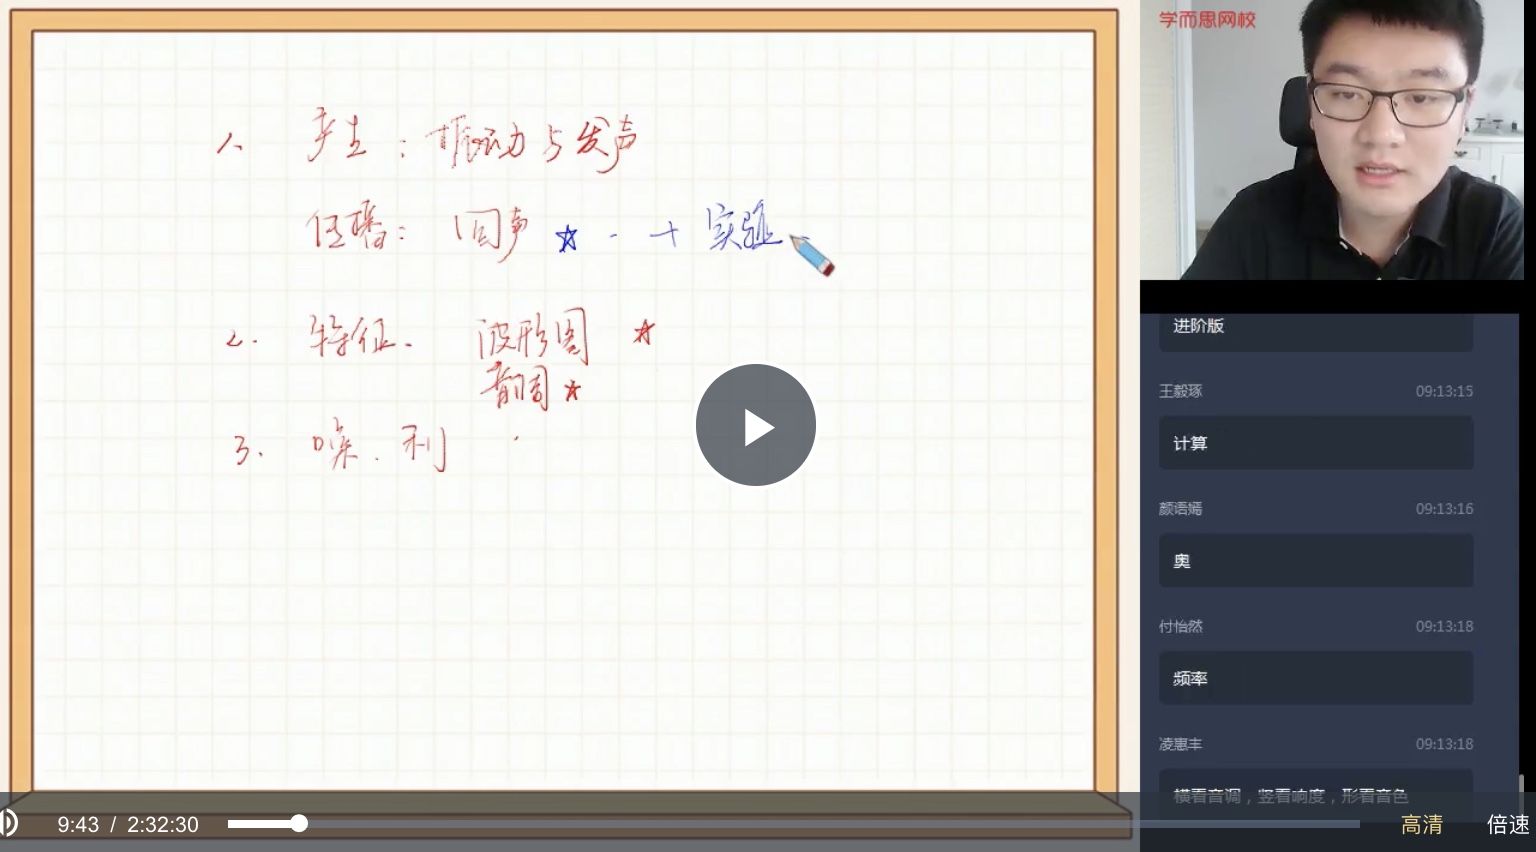 学而思网校
1. 产生：振动与发声
传播：回声 ☆ - + 实验
2. 特征. 波形图 ☆
音调 ☆
3. 噪. 利
进阶版
王毅琢 09:13:15
计算
颜语嫣 09:13:16
奥
付怡然 09:13:18
频率
凌惠丰 09:13:18
横看音调，竖看响度，形看音色
9:43 / 2:32:30
高清 倍速